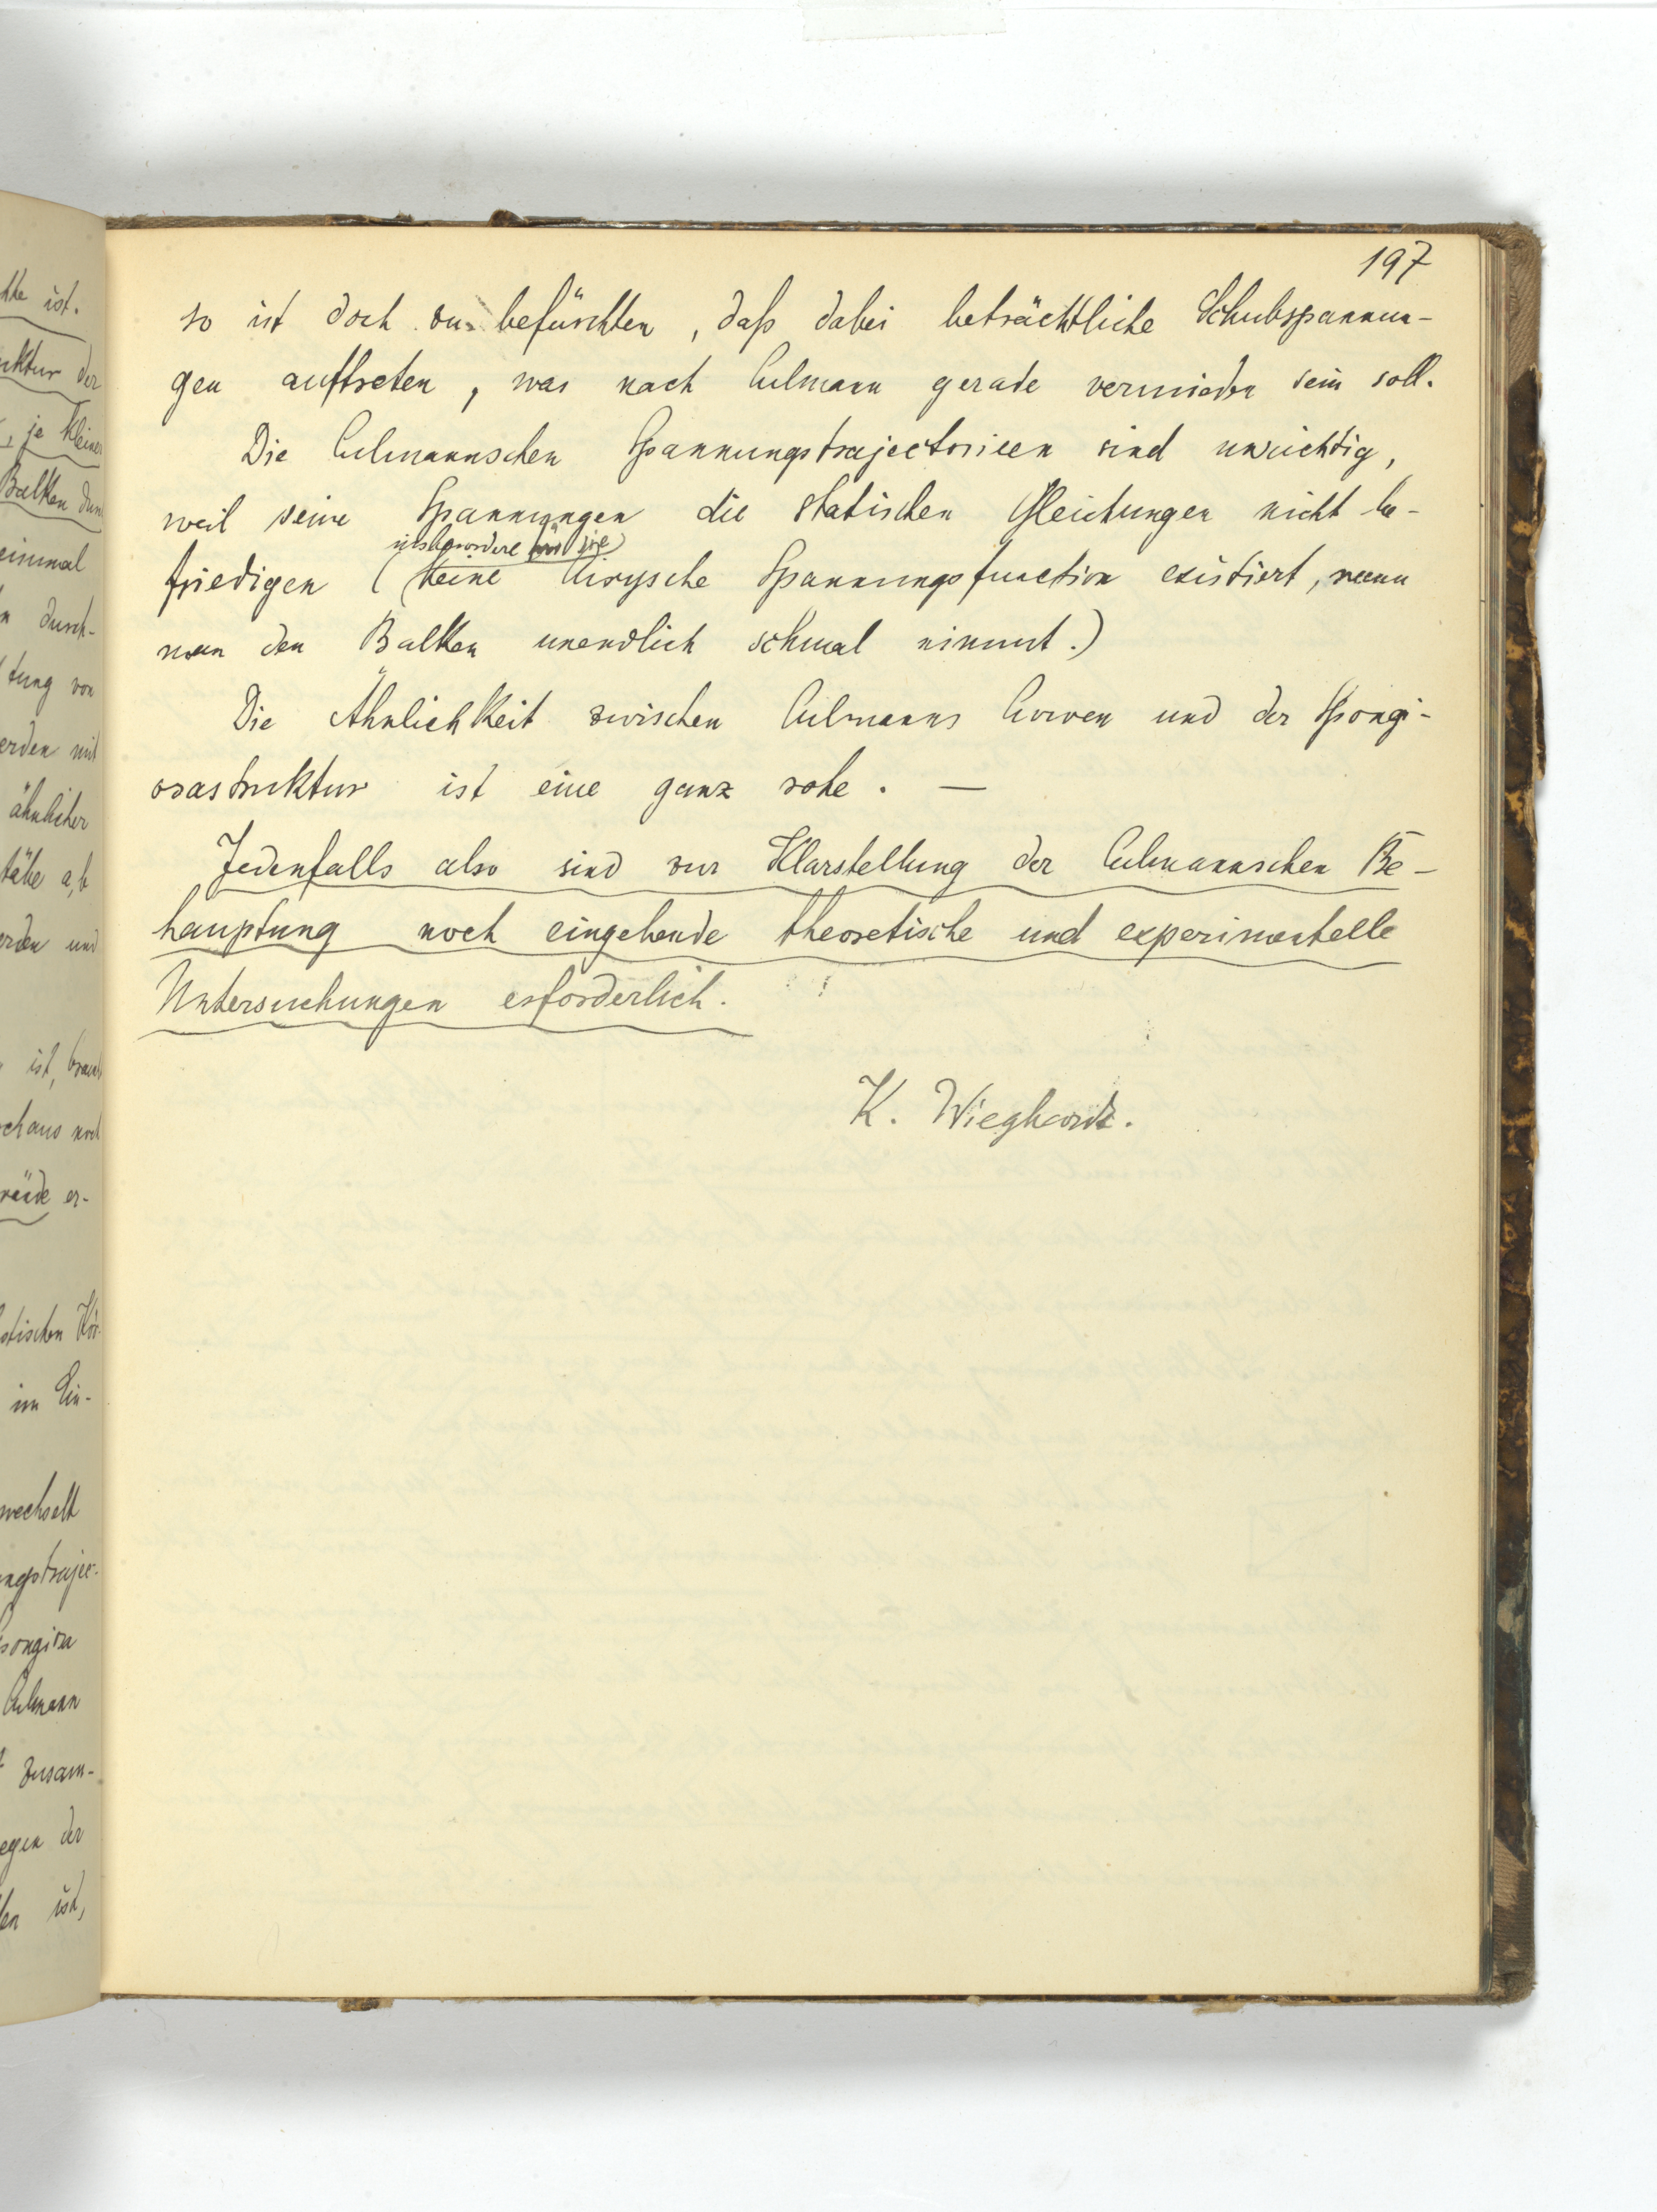 197
so ist doch zu befürchten, daß dabei beträchtliche Schubspannun-
gen auftreten, was nach Culmann gerade vermieden sein soll.
Die Culmannschen Spannungstrajectorieen sind unrichtig,
weil seine Spannungen die statischen Gleichungen nicht be-
insbesondere für sie
friedigen (keine Airysche Spannungsfunction existiert, wenn
man den Balken unendlich schmal nimmt.)
Die Ähnlichkeit zwischen Culmanns Curven und der Spongi-
osastruktur ist eine ganz rohe. —
Jedenfalls also sind zur Klarstellung der Culmannschen Be-
hauptung noch eingehende theoretische und experimentelle
Untersuchungen erforderlich.
K. Wieghardt.
ist.
uktur der
, je kleiner
Balken
einmal
durch-
tung von
erden mit
ähnlicher
stäbe a, b
erden und
ist,
rchaus
er-
stischen
im Ein-
wechselt
ngstrajec-
pongiosa
Culmann
zusam-
egen der
ist,